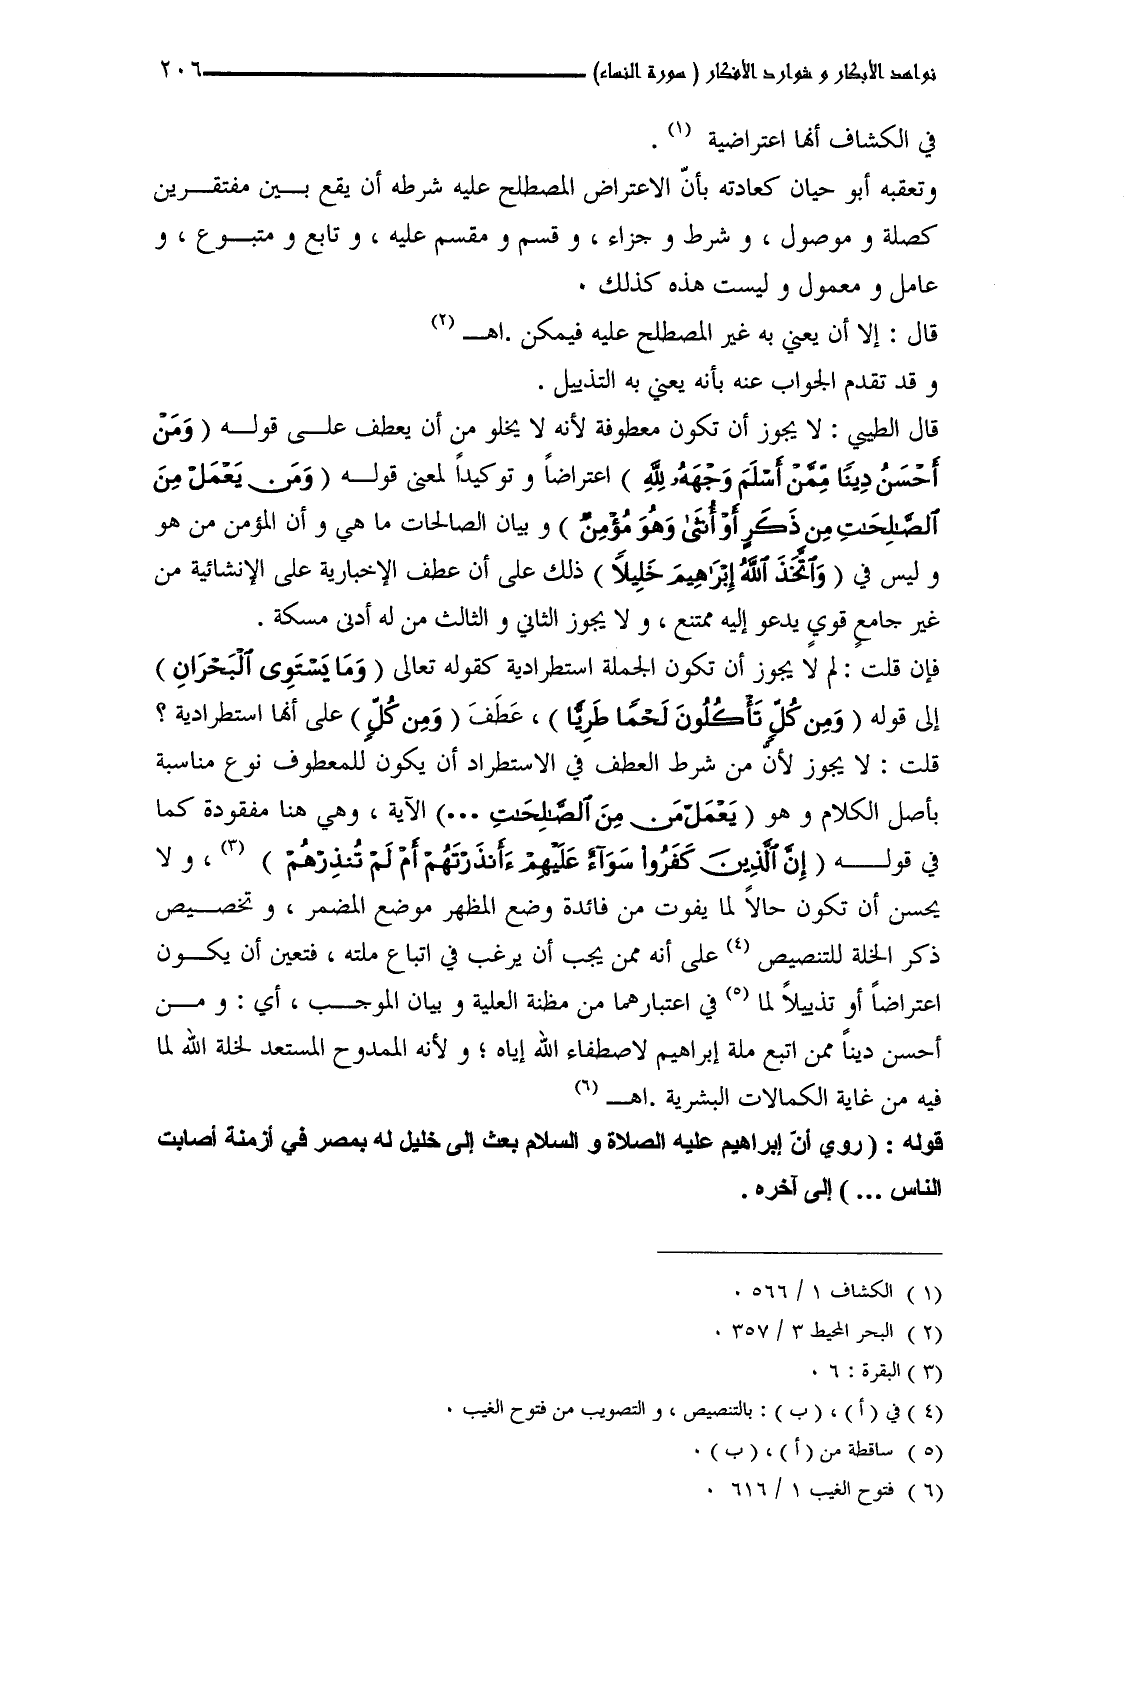 نواهد الأبكار و شوارد الأفكار ( سورة النساء) ٢٠٦
في الكشاف أنها اعتراضية (١) .
وتعقبه أبو حيان كعادته بأنّ الاعتراض المصطلح عليه شرطه أن يقع بـــين مفتقـــرين
كصلة و موصول ، و شرط و جزاء ، و قسم و مقسم عليه ، و تابع و متبـــوع ، و
عامل و معمول و ليست هذه كذلك .
قال : إلا أن يعني به غير المصطلح عليه فيمكن .اهـــ (٢)
و قد تقدم الجواب عنه بأنه يعني به التذييل .
قال الطيبي : لا يجوز أن تكون معطوفة لأنه لا يخلو من أن يعطف علـــى قولـــه ( وَمَنْ
أَحْسَنُ دِينًا مِّمَّنْ أَسْلَمَ وَجْهَهُۥ لِلَّهِ ) اعتراضاً و توكيداً لمعنى قولـــه ( وَمَن يَعْمَلْ مِنَ
ٱلصَّٰلِحَٰتِ مِن ذَكَرٍ أَوْ أُنثَىٰ وَهُوَ مُؤْمِنٌ ) و بيان الصالحات ما هي و أن المؤمن من هو
و ليس في ( وَٱتَّخَذَ ٱللَّهُ إِبْرَٰهِيمَ خَلِيلاً ) ذلك على أن عطف الإخبارية على الإنشائية من
غير جامعٍ قويٍ يدعو إليه ممتنع ، و لا يجوز الثاني و الثالث من له أدنى مسكة .
فإن قلت : لم لا يجوز أن تكون الجملة استطرادية كقوله تعالى ( وَمَا يَسْتَوِى ٱلْبَحْرَانِ )
إلى قوله ( وَمِن كُلٍّ تَأْكُلُونَ لَحْمًا طَرِيًّا ) ، عَطَفَ ( وَمِن كُلٍّ ) على أنها استطرادية ؟
قلت : لا يجوز لأنّ من شرط العطف في الاستطراد أن يكون للمعطوف نوع مناسبة
بأصل الكلام و هو ( يَعْمَلْ مَن مِنَ ٱلصَّٰلِحَٰتِ ...) الآية ، وهي هنا مفقودة كما
في قولـــــه ( إِنَّ ٱلَّذِينَ كَفَرُوا۟ سَوَآءٌ عَلَيْهِمْ ءَأَنذَرْتَهُمْ أَمْ لَمْ تُنذِرْهُمْ ) (٣) ، و لا
يحسن أن تكون حالاً لما يفوت من فائدة وضع المظهر موضع المضمر ، و تخصـــيص
ذكر الخلة للتنصيص (٤) على أنه ممن يجب أن يرغب في اتباع ملته ، فتعين أن يكـــون
اعتراضاً أو تذييلاً لما (٥) في اعتبارهما من مظنة العلية و بيان الموجـــب ، أي : و مـــن
أحسن ديناً ممن اتبع ملة إبراهيم لاصطفاء الله إياه ؛ و لأنه الممدوح المستعد لخلة الله لما
فيه من غاية الكمالات البشرية .اهـــ (٦)
قوله : ( روي أنّ إبراهيم عليه الصلاة و السلام بعث إلى خليل له بمصر في أزمنة أصابت
الناس ... ) إلى آخره .
(١ ) الكشاف ١ / ٥٦٦ .
(٢ ) البحر المحيط ٣ / ٣٥٧ .
(٣ ) البقرة : ٦ .
(٤ ) في ( أ ) ، ( ب ) : بالتنصيص ، و التصويب من فتوح الغيب .
(٥ ) ساقطة من ( أ ) ، ( ب ) .
(٦ ) فتوح الغيب ١ / ٦١٦ .